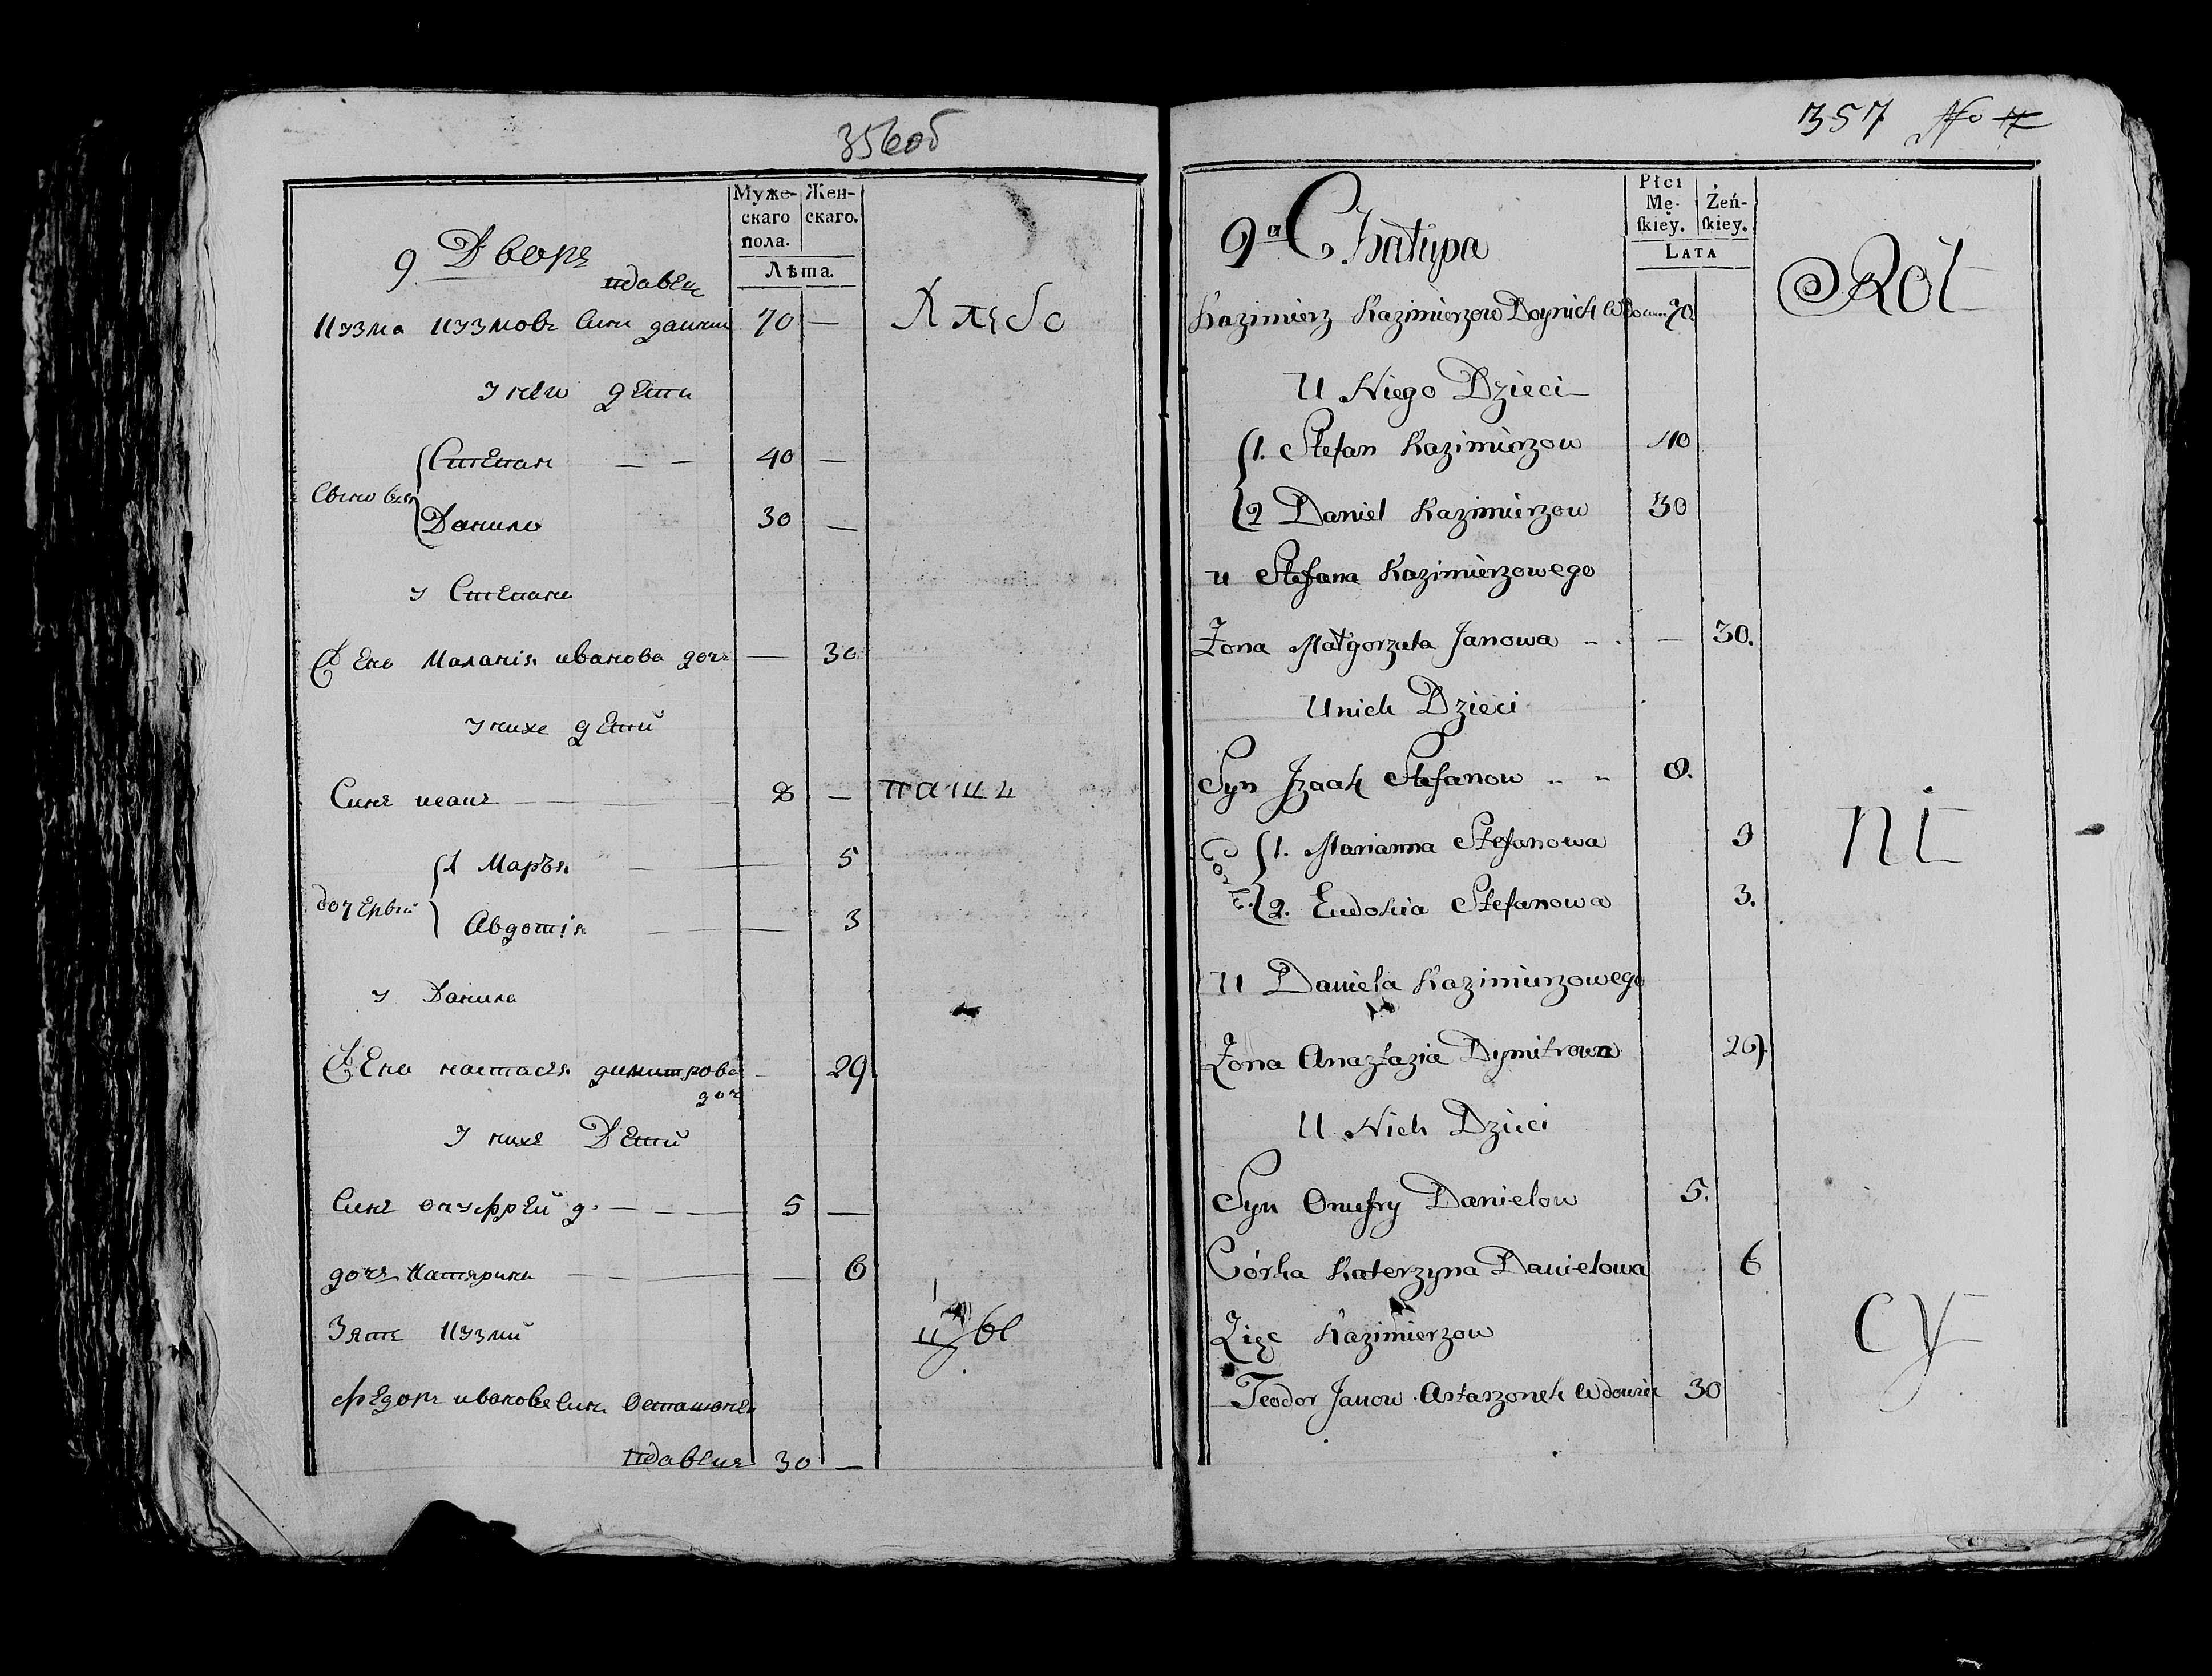 356об
Муже-
скаго
пола.
Жен-
скаго.
Лѣта.
9 Дворъ
вдавец
Кузма Кузмовъ Синъ
70 —
Хлѣбо
У него дети
Сынов
Степан — — 40 —
Данило 30 —
У Степана
Жена Маланія иванова дочъ — 30
У нихъ дети
Синъ исакъ — 8 —
паши
дочерѣй
1 Маръя — 5
Авдотія — 3
У Данила
Жена настасъя димитрова
доч
29
У нихъ Дети
Синъ онуфрей д. — — — 5 —
дочъ Катярина — — — — 6
Зятъ Кузми
Федоръ ивановъ Синъ Осташонек
вдавецъ 30 —
357 No 17
Płci
Mę-
ſkiey.
Żeń-
ſkiey.
LATA
9a Chałupa
Rol-
Kazimierz Kazimierzow Doynich Wdowiec 70.
U Niego Dzieci
1. Stefan Kazimierzow 40
2 Daniel Kazimierzow 30
u Stefana Kazimierzowego
Żona Małgorzata Janowa — 30.
U nich Dzieci
Syn Jzaak Stefanow 8.
ni-
Corki
1. Marianna Stefanowa 5
2. Eudokia Stefanowa 3.
U Daniela Kazimierzowego
Żona Anaztazia Dymitrowa 29.
U Nich Dzieci
Syn Onufry Danielow 5.
Córka Katerzyna Danielowa 6
Zięc Kazimierzow
cy-
Teodor Janow Astaszonek Wdowiec 30